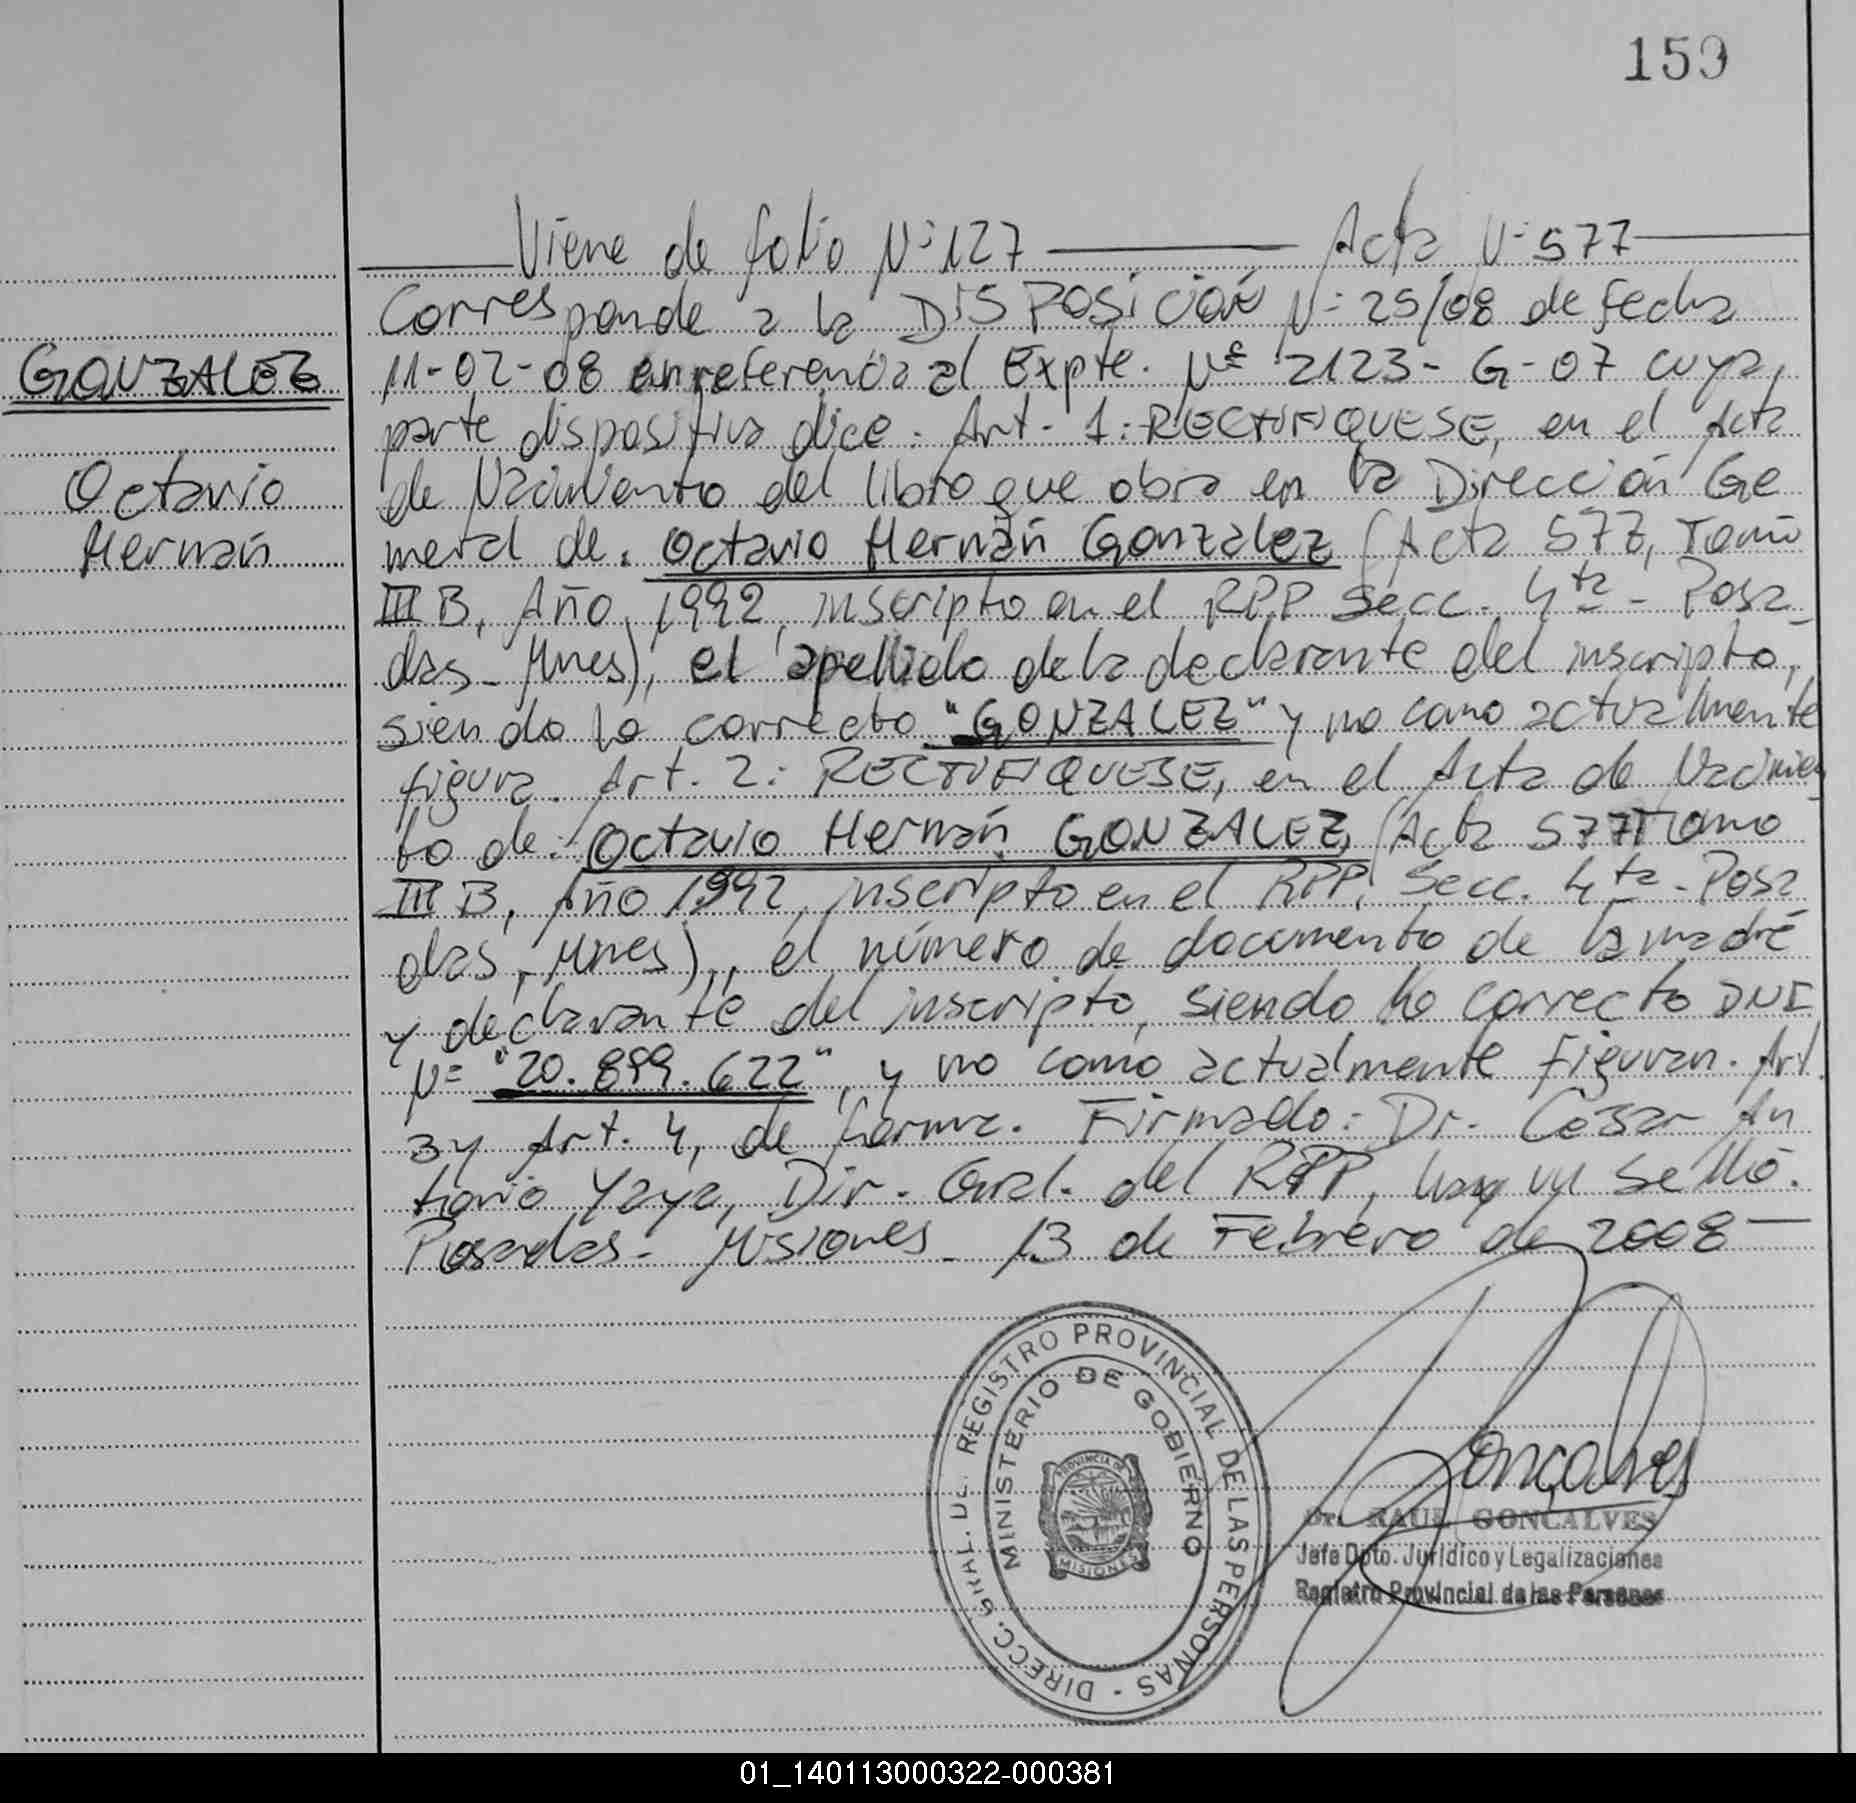 159
Viene de folio N° 127 Acta N° 577
Corresponde a la DISPOSICIÓN N° 25/08 de fecha
GONZALEZ
11-02-08 en referencia al Expte. N° 2123-G-07 cuya
parte dispositiva dice: Art. 1: RECTIFIQUESE, en el Acta
Octavio
de Nacimiento del libro que obra en la Dirección Ge
Hernán
neral de: Octavio Hernán Gonzalez (Acta 577, Tomo
III B, Año 1992, inscripto en el RPP Secc. 4ta - Posa
das - Mnes), el apellido de la declarante del inscripto,
siendo lo correcto "GONZALEZ" y no como actualmente
figura. Art. 2: RECTIFIQUESE, en el Acta de Nacimien
to de: Octavio Hernán GONZALEZ (Acta 577 Tomo
III B, Año 1992, inscripto en el RPP, Secc. 4ta - Posa
das, Mnes), el número de documento de la madre
y declarante del inscripto, siendo lo correcto DNI
N° "20.899.622", y no como actualmente figuran. Art.
3 y Art. 4, de forma. Firmado: Dr. Cesar An
tonio Yaya, Dir. Gral. del RPP, hay un sello.
Posadas - Misiones - 13 de Febrero de 2008
DIRECC. GRAL. DE REGISTRO PROVINCIAL DE LAS PERSONAS -
MINISTERIO DE GOBIERNO
PROVINCIA DE
MISIONES
Gonçalves
Dr. RAUL GONCALVES
Jefe Dpto. Jurídico y Legalizaciones
Registro Provincial de las Personas
01_140113000322-000381